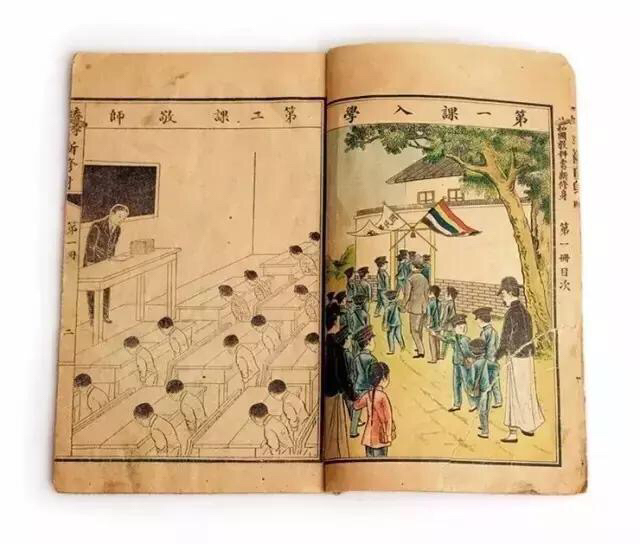 第一課 入學
共和國教科書新修身 第一冊 目次
第二課 敬師
新修身 第一冊 二